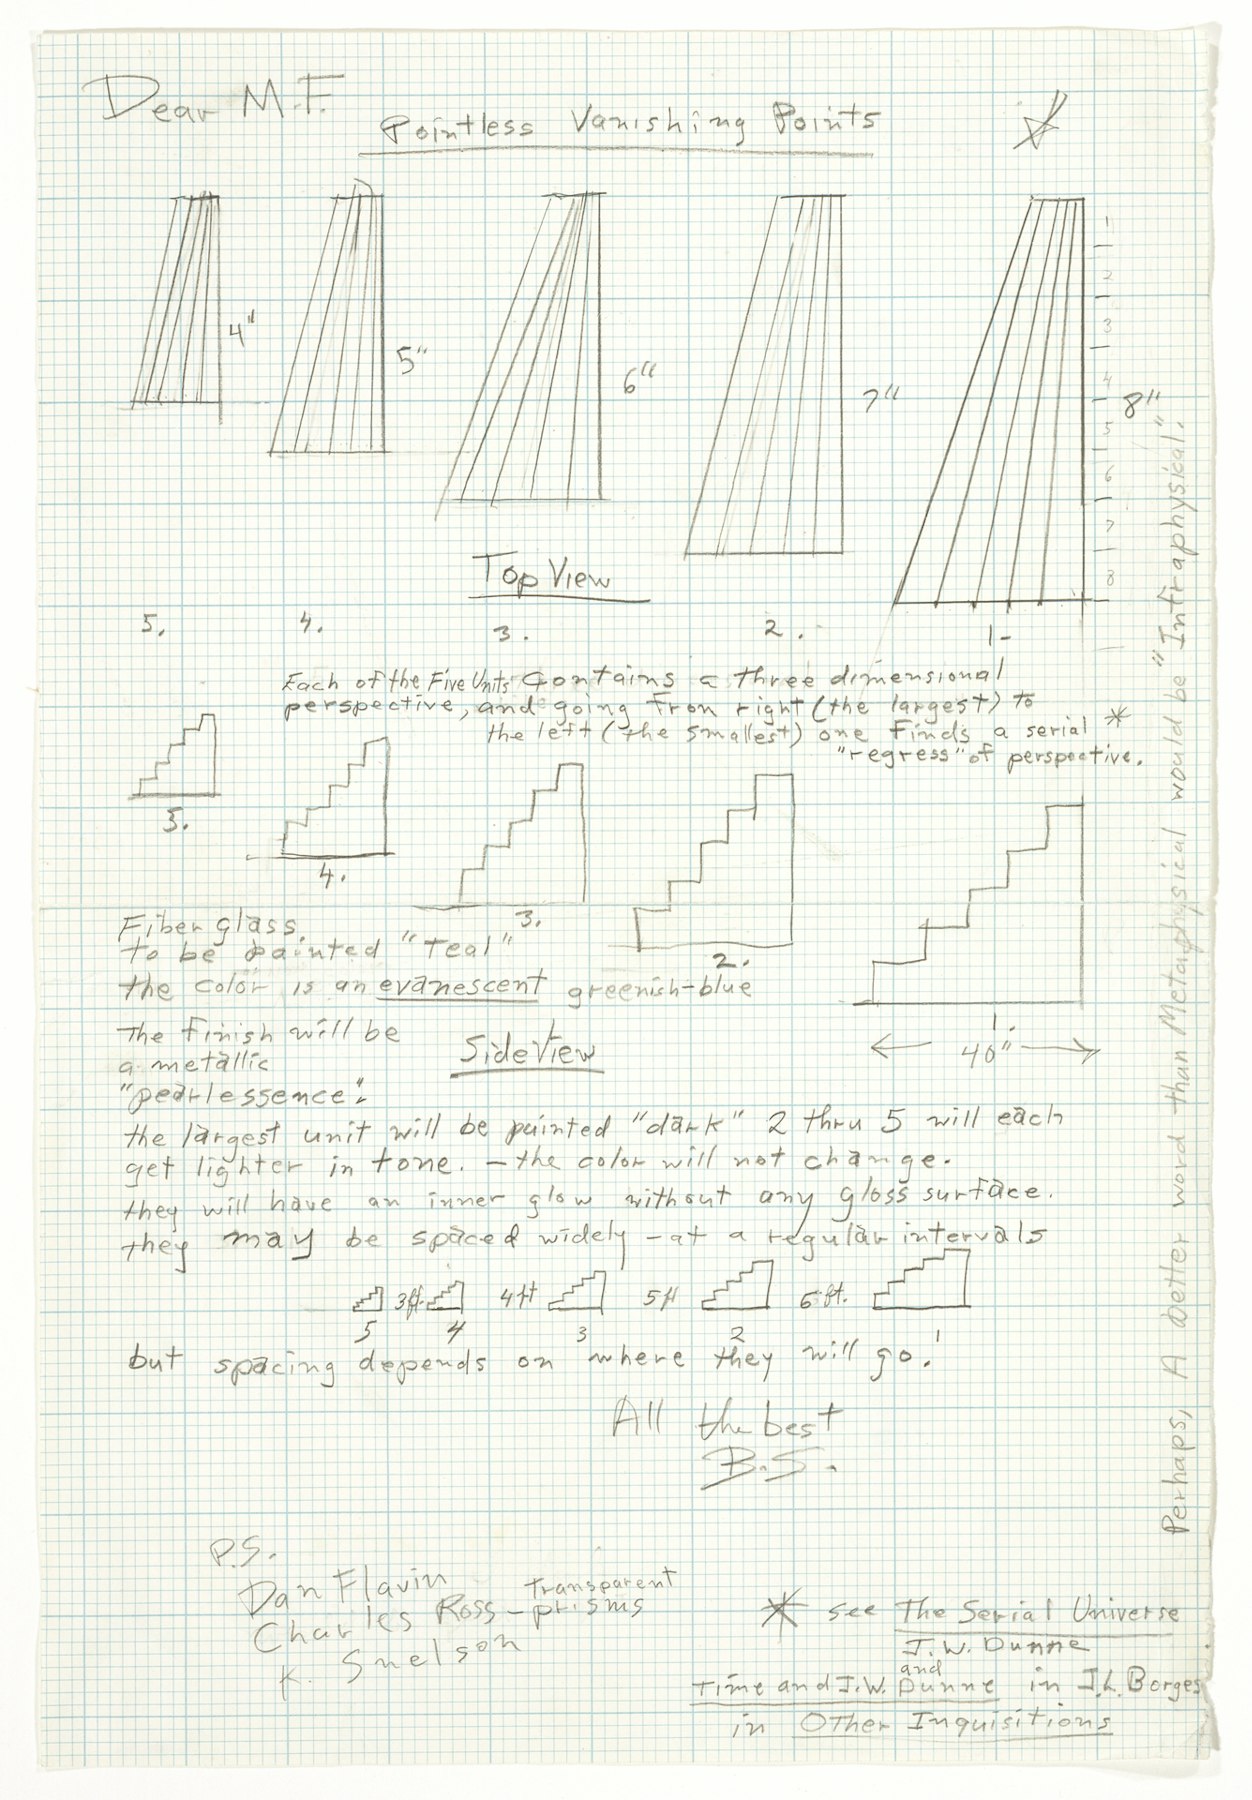 Dear M.F.
Pointless Vanishing Points
4"
5"
6"
7"
8"
1
2
3
4
5
6
7
8
Top View
5.
4.
3.
2.
1-
Each of the Five Units Contains a three dimensional
perspective, and going from right (the largest) to
the left (the smallest) one finds a serial *
"regress" of perspective.
5.
4.
3.
2.
1.
40"
Fiber glass.
to be painted "Teal"
the color is an evanescent greenish-blue
The Finish will be
a metallic
"pearlessence".
Side View
the largest unit will be painted "dark" 2 thru 5 will each
get lighter in tone. – the color will not change.
they will have an inner glow without any gloss surface.
they may be spaced widely – at a regular intervals
3ft. 4ft 5ft 6ft.
5 4 3 2 1
but spacing depends on where they will go.
All the best
B.S.
P.S.
Dan Flavin
Charles Ross – Transparent prisms
K. Snelson
* see The Serial Universe
J.W. Dunne
and
Time and J.W. Dunne in J.L. Borges
in Other Inquisitions
Perhaps, A better word than Metaphysical would be "Intraphysical".